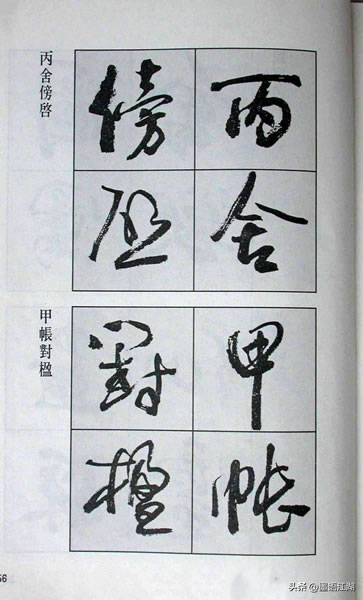 丙舍
傍啓
丙舍傍啓
甲帳
對楹
甲帳對楹
56
头条